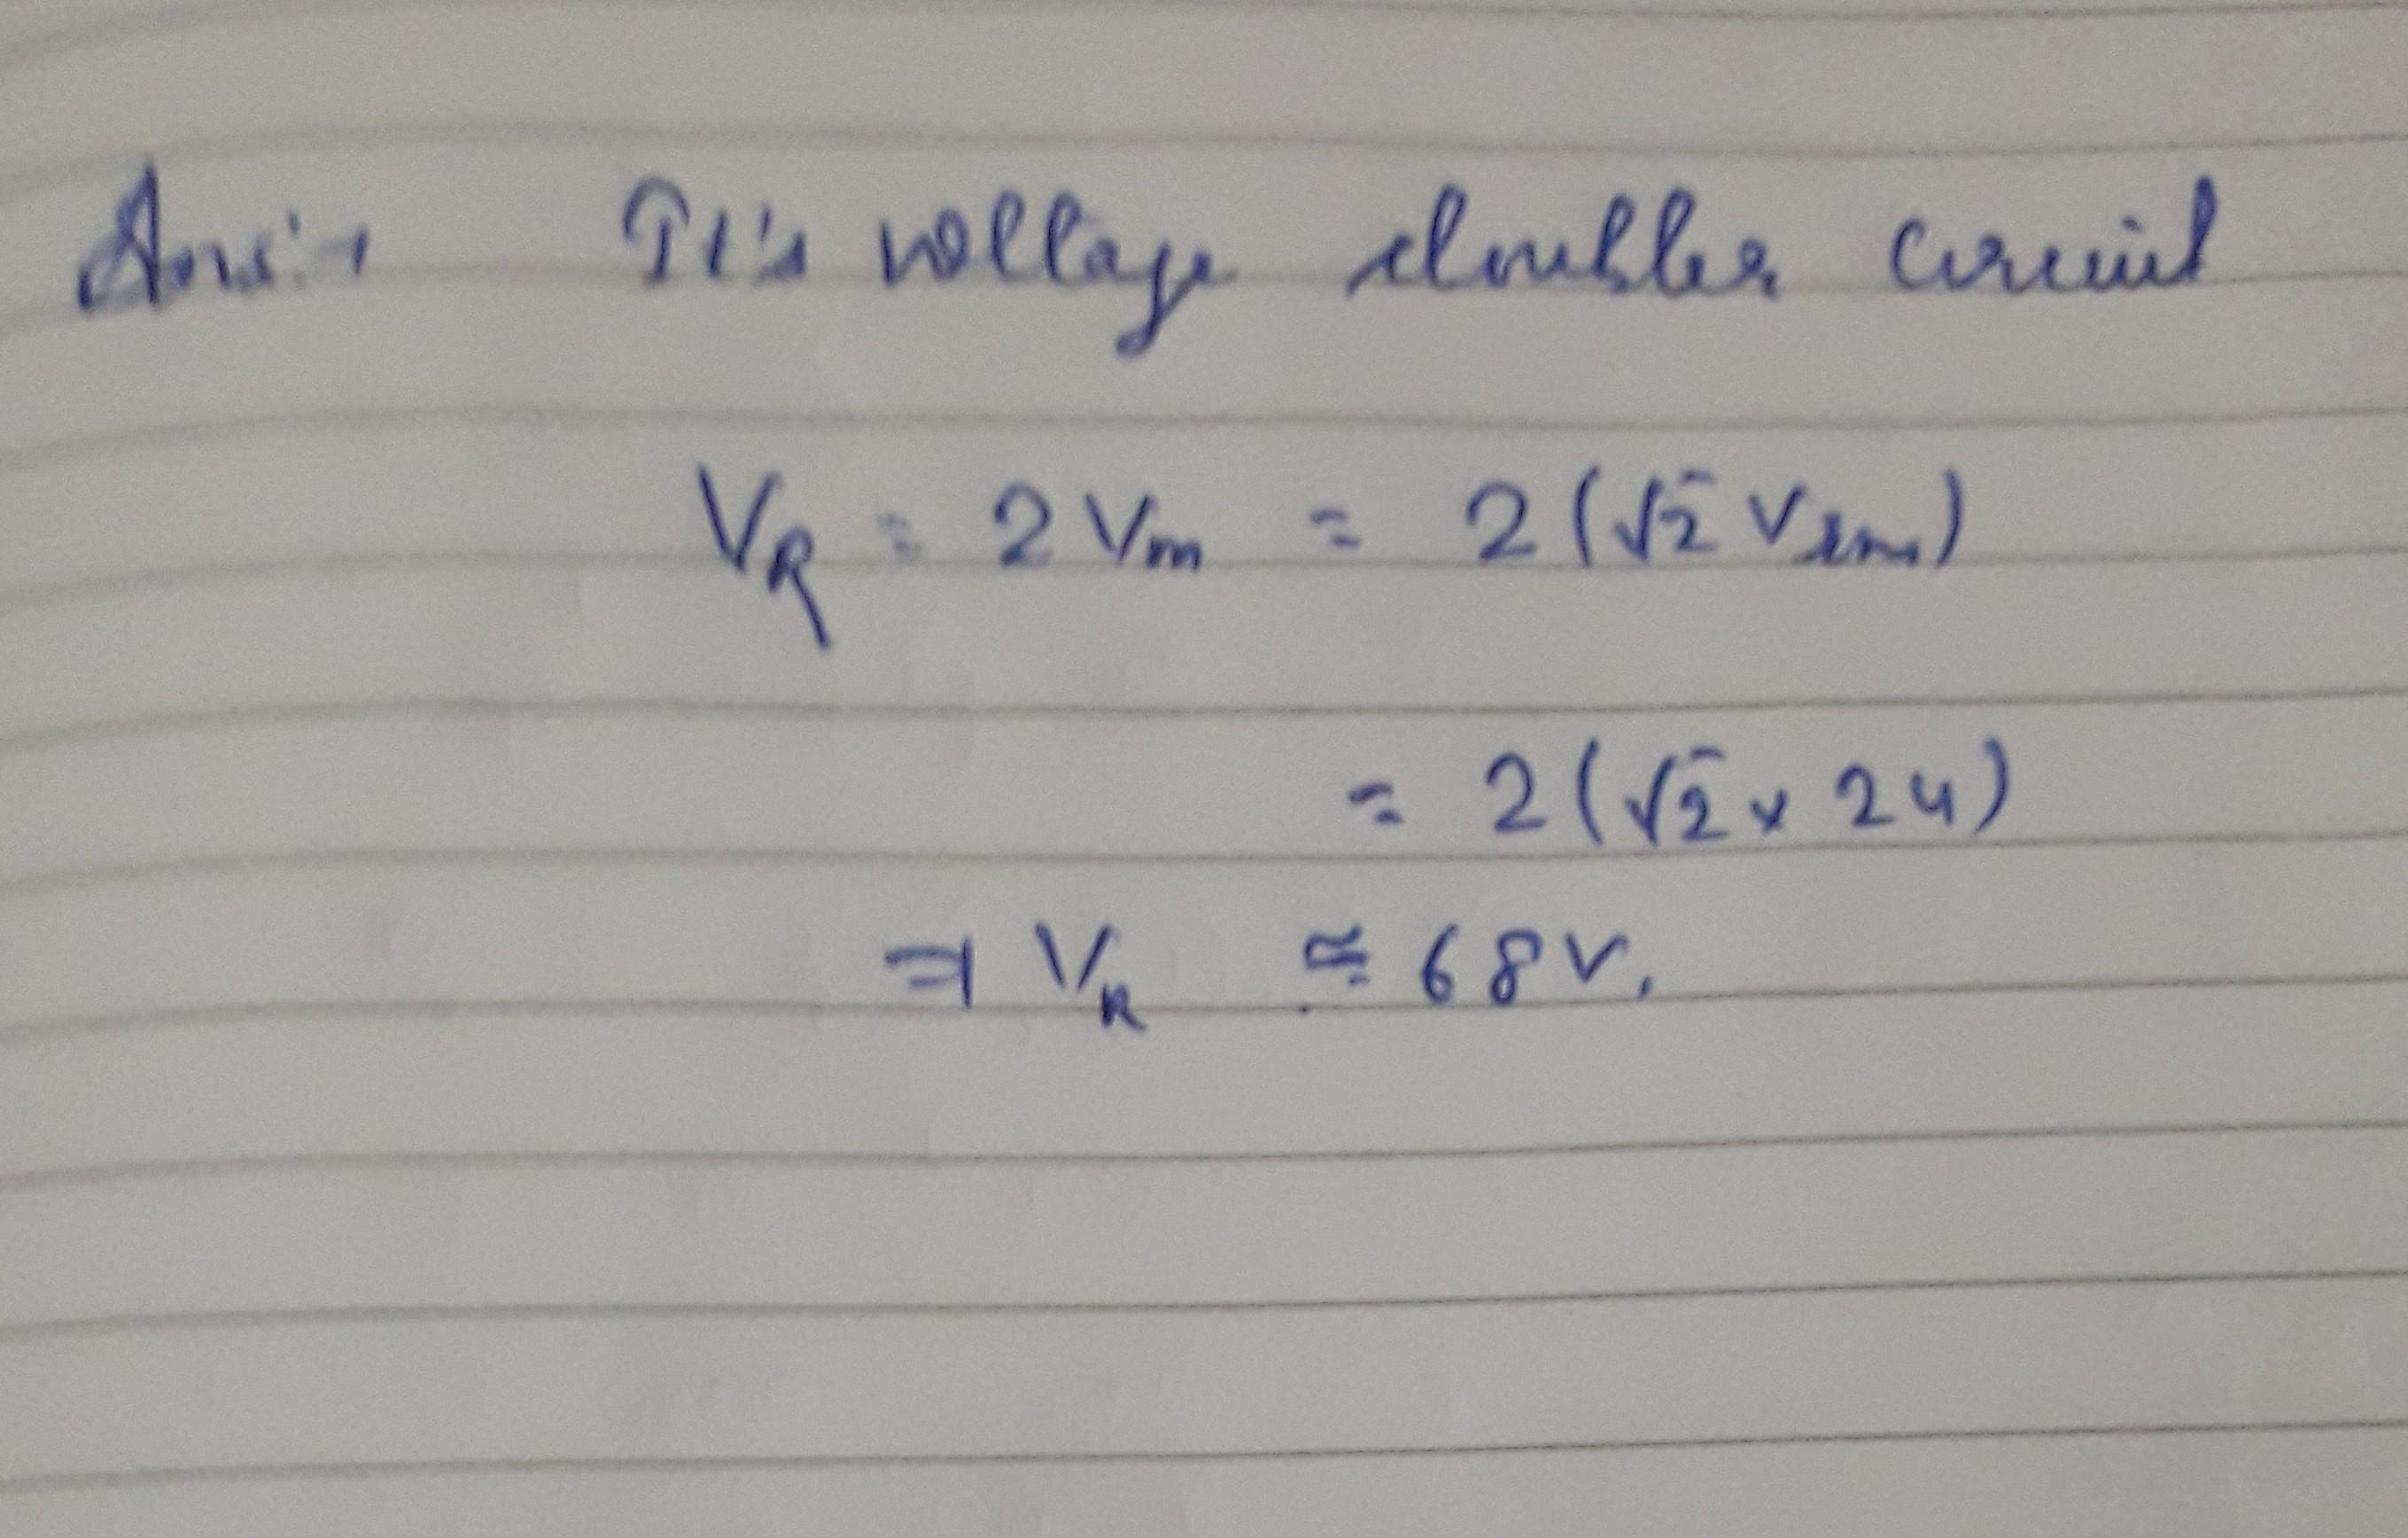 Ans:→ It's voltage doubler circuit
V_R = 2 V_m = 2 (√2 V_rms)
= 2 (√2 x 24)
⇒ V_R ≅ 68 V.